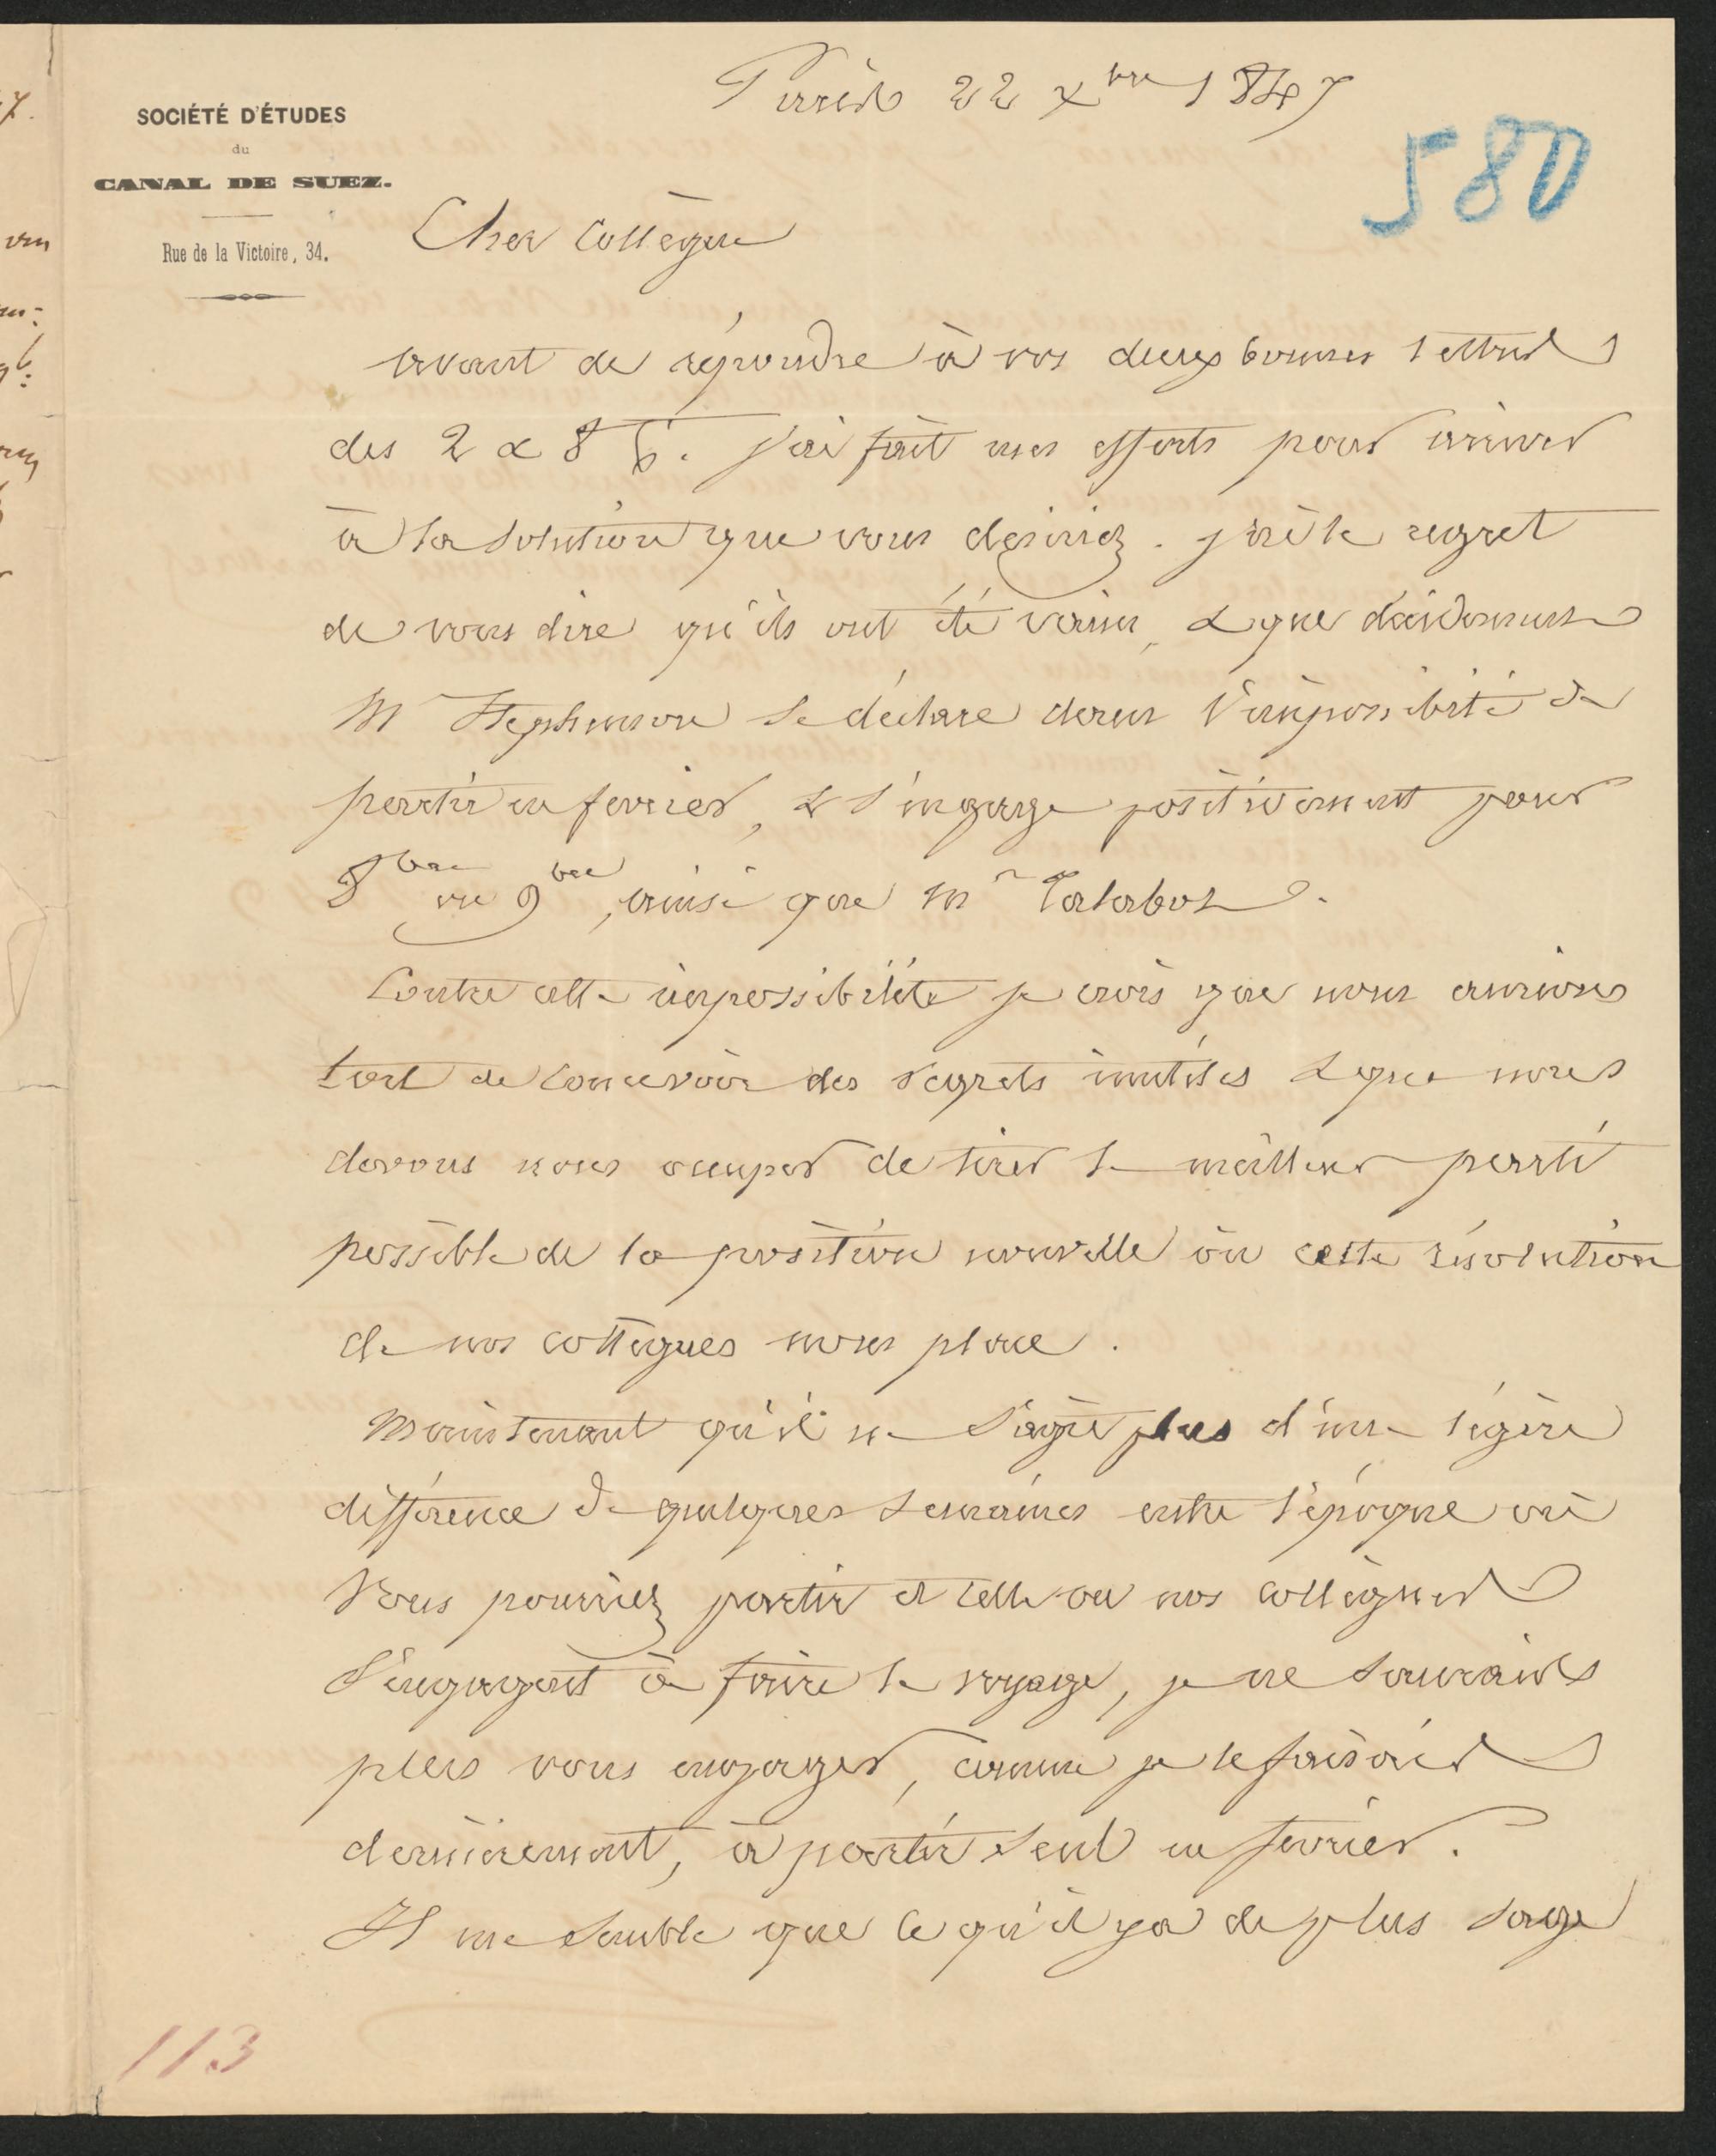 Paris 22 Xbre 1847
580
SOCIÉTÉ D'ÉTUDES
du
CANAL DE SUEZ.
Rue de la Victoire, 34.
Cher Collègue
avant de répondre à vos deux bonnes lettres
des 2 & 8 j'ai fait mes efforts pour arriver
à la solution que vous desiriez. j'ai le regret
de vous dire qu'ils ont été vains, & que décidement
Mr Stephenson se déclare dans l'impossibilité de
partir en fevrier, & s'engage positivement pour
8bre ou 9bre, ainsi que Mr Talabot.
Contre cette impossibilité je crois que nous aurions
tort de concevoir des regrets inutiles & que nous
devons nous occuper de tirer le meilleur parti
possible de la position nouvelle où cette résolution
de nos collègues nous place.
Maintenant qu'il ne s'agit plus d'une légère
différence de quelques semaines entre l'époque où
Vous pourriez partir et celle où nos collègues
s'engagent à faire le voyage, je ne saurais
plus vous engager, comme je le faisais
dernièrement, à partir seul en fevrier.
Il me semble que ce qu'il y a de plus sage
113